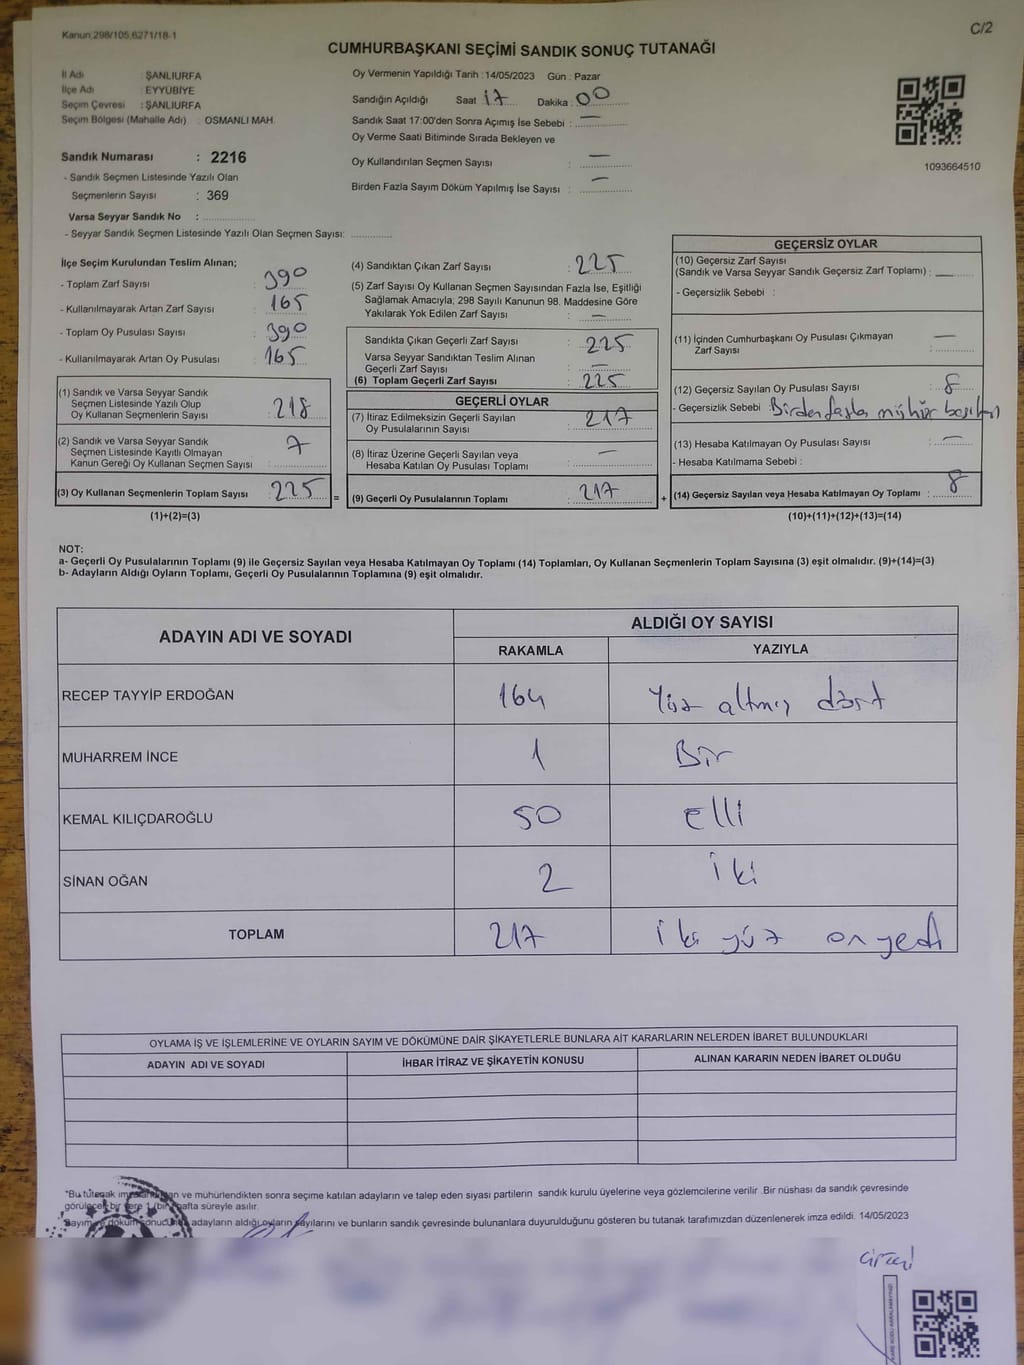 Kanun 298/105,6271/18-1
C/2
CUMHURBAŞKANI SEÇİMİ SANDIK SONUÇ TUTANAĞI
İl Adı : ŞANLIURFA
İlçe Adı : EYYÜBİYE
Seçim Çevresi : ŞANLIURFA
Seçim Bölgesi (Mahalle Adı) : OSMANLI MAH.
Sandık Numarası : 2216
- Sandık Seçmen Listesinde Yazılı Olan
Seçmenlerin Sayısı : 369
Varsa Seyyar Sandık No :
- Seyyar Sandık Seçmen Listesinde Yazılı Olan Seçmen Sayısı:
Oy Vermenin Yapıldığı Tarih : 14/05/2023 Gün : Pazar
Sandığın Açıldığı Saat 17 Dakika : 00
Sandık Saat 17:00'den Sonra Açımış İse Sebebi : —
Oy Verme Saati Bitiminde Sırada Bekleyen ve
Oy Kullandırılan Seçmen Sayısı : —
Birden Fazla Sayım Döküm Yapılmış İse Sayısı : —
1093664510
İlçe Seçim Kurulundan Teslim Alınan;
- Toplam Zarf Sayısı : 390
- Kullanılmayarak Artan Zarf Sayısı : 165
- Toplam Oy Pusulası Sayısı : 390
- Kullanılmayarak Artan Oy Pusulası : 165
(1) Sandık ve Varsa Seyyar Sandık
Seçmen Listesinde Yazılı Olup
Oy Kullanan Seçmenlerin Sayısı : 218
(2) Sandık ve Varsa Seyyar Sandık
Seçmen Listesinde Kayıtlı Olmayan
Kanun Gereği Oy Kullanan Seçmen Sayısı : 7
(3) Oy Kullanan Seçmenlerin Toplam Sayısı 225 =
(1)+(2)=(3)
(4) Sandıktan Çıkan Zarf Sayısı : 225
(5) Zarf Sayısı Oy Kullanan Seçmen Sayısından Fazla İse, Eşitliği
Sağlamak Amacıyla; 298 Sayılı Kanunun 98. Maddesine Göre
Yakılarak Yok Edilen Zarf Sayısı : —
Sandıkta Çıkan Geçerli Zarf Sayısı : 225
Varsa Seyyar Sandıktan Teslim Alınan
Geçerli Zarf Sayısı : —
(6) Toplam Geçerli Zarf Sayısı : 225
GEÇERLİ OYLAR
(7) İtiraz Edilmeksizin Geçerli Sayılan
Oy Pusulalarının Sayısı : 217
(8) İtiraz Üzerine Geçerli Sayılan veya
Hesaba Katılan Oy Pusulası Toplamı : —
(9) Geçerli Oy Pusulalarının Toplamı : 217 +
GEÇERSİZ OYLAR
(10) Geçersiz Zarf Sayısı
(Sandık ve Varsa Seyyar Sandık Geçersiz Zarf Toplamı) : —
- Geçersizlik Sebebi :
(11) İçinden Cumhurbaşkanı Oy Pusulası Çıkmayan
Zarf Sayısı : —
(12) Geçersiz Sayılan Oy Pusulası Sayısı : 8
- Geçersizlik Sebebi : Birden fazla mühür
(13) Hesaba Katılmayan Oy Pusulası Sayısı : —
- Hesaba Katılmama Sebebi :
(14) Geçersiz Sayılan veya Hesaba Katılmayan Oy Toplamı : 8
(10)+(11)+(12)+(13)=(14)
NOT:
a- Geçerli Oy Pusulalarının Toplamı (9) ile Geçersiz Sayılan veya Hesaba Katılmayan Oy Toplamı (14) Toplamları, Oy Kullanan Seçmenlerin Toplam Sayısına (3) eşit olmalıdır. (9)+(14)=(3)
b- Adayların Aldığı Oyların Toplamı, Geçerli Oy Pusulalarının Toplamına (9) eşit olmalıdır.
ADAYIN ADI VE SOYADI
ALDIĞI OY SAYISI
RAKAMLA YAZIYLA
RECEP TAYYİP ERDOĞAN 164 Yüz altmış dört
MUHARREM İNCE 1 Bir
KEMAL KILIÇDAROĞLU 50 elli
SİNAN OĞAN 2 iki
TOPLAM 217 iki yüz on yedi
OYLAMA İŞ VE İŞLEMLERİNE VE OYLARIN SAYIM VE DÖKÜMÜNE DAİR ŞİKAYETLERLE BUNLARA AİT KARARLARIN NELERDEN İBARET BULUNDUKLARI
ADAYIN ADI VE SOYADI İHBAR İTİRAZ VE ŞİKAYETİN KONUSU ALINAN KARARIN NEDEN İBARET OLDUĞU
"Bu tutanak ve mühürlendikten sonra seçime katılan adayların ve talep eden siyasi partilerin sandık kurulu üyelerine veya gözlemcilerine verilir .Bir nüshası da sandık çevresinde
görülecek bir yere 1 (bir) hafta süreyle asılır.
Sayım ve döküm sonucunda adayların aldığı oyların sayılarını ve bunların sandık çevresinde bulunanlara duyurulduğunu gösteren bu tutanak tarafımızdan düzenlenerek imza edildi. 14/05/2023